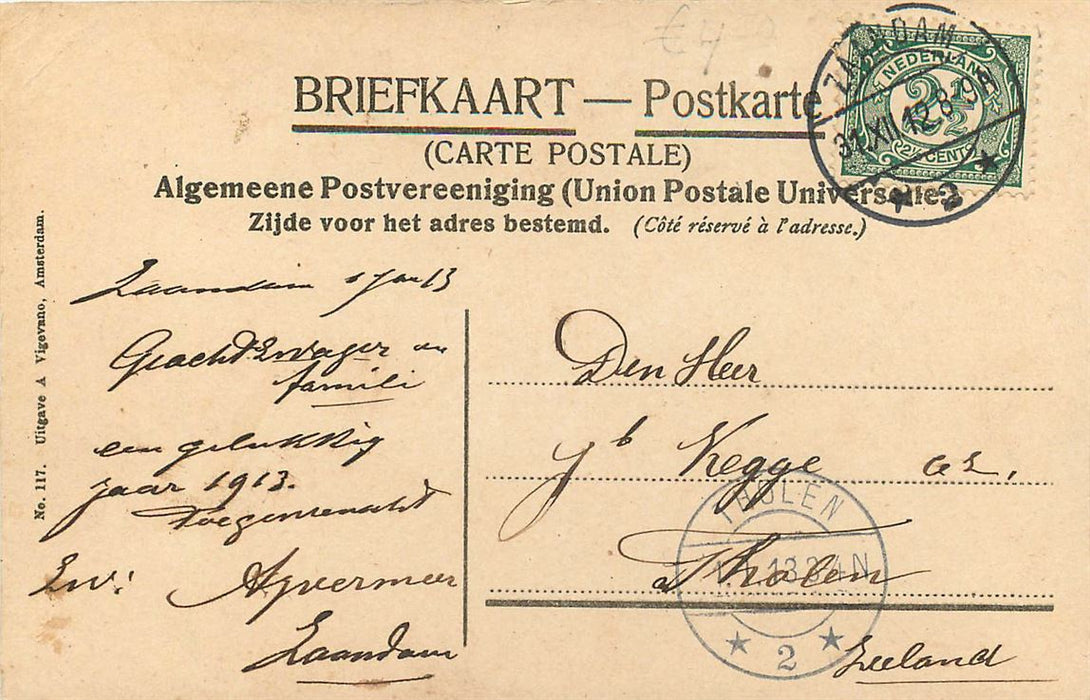 €4
BRIEFKAART — Postkarte
(CARTE POSTALE)
Algemeene Postvereeniging (Union Postale Universelle)
Zijde voor het adres bestemd. (Côté réservé à l'adresse.)
ZAANDAM
31.XII.12.8-9N
2
NEDERLAND
2½
2½ CENT
No. 117. Uitgave A Vigevano, Amsterdam.
Zaandam 1 Jan 13
Geacht Zwager en
famili
een gelukkig
jaar 1913.
Toegenwenscht
Uw:
Zaandam
Den Heer
Jb Kegge az,
Tholen
Zeeland
THOLEN
13.3-4N
2